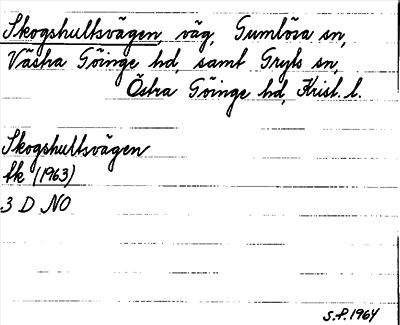 Skogshultsvägen, väg, Gumlösa sn,
Västra Göinge hd, samt Gryts sn,
Östra Göinge hd, Krist. l.
Skogshultsvägen
tk (1963)
3 D NO
S.P. 1964